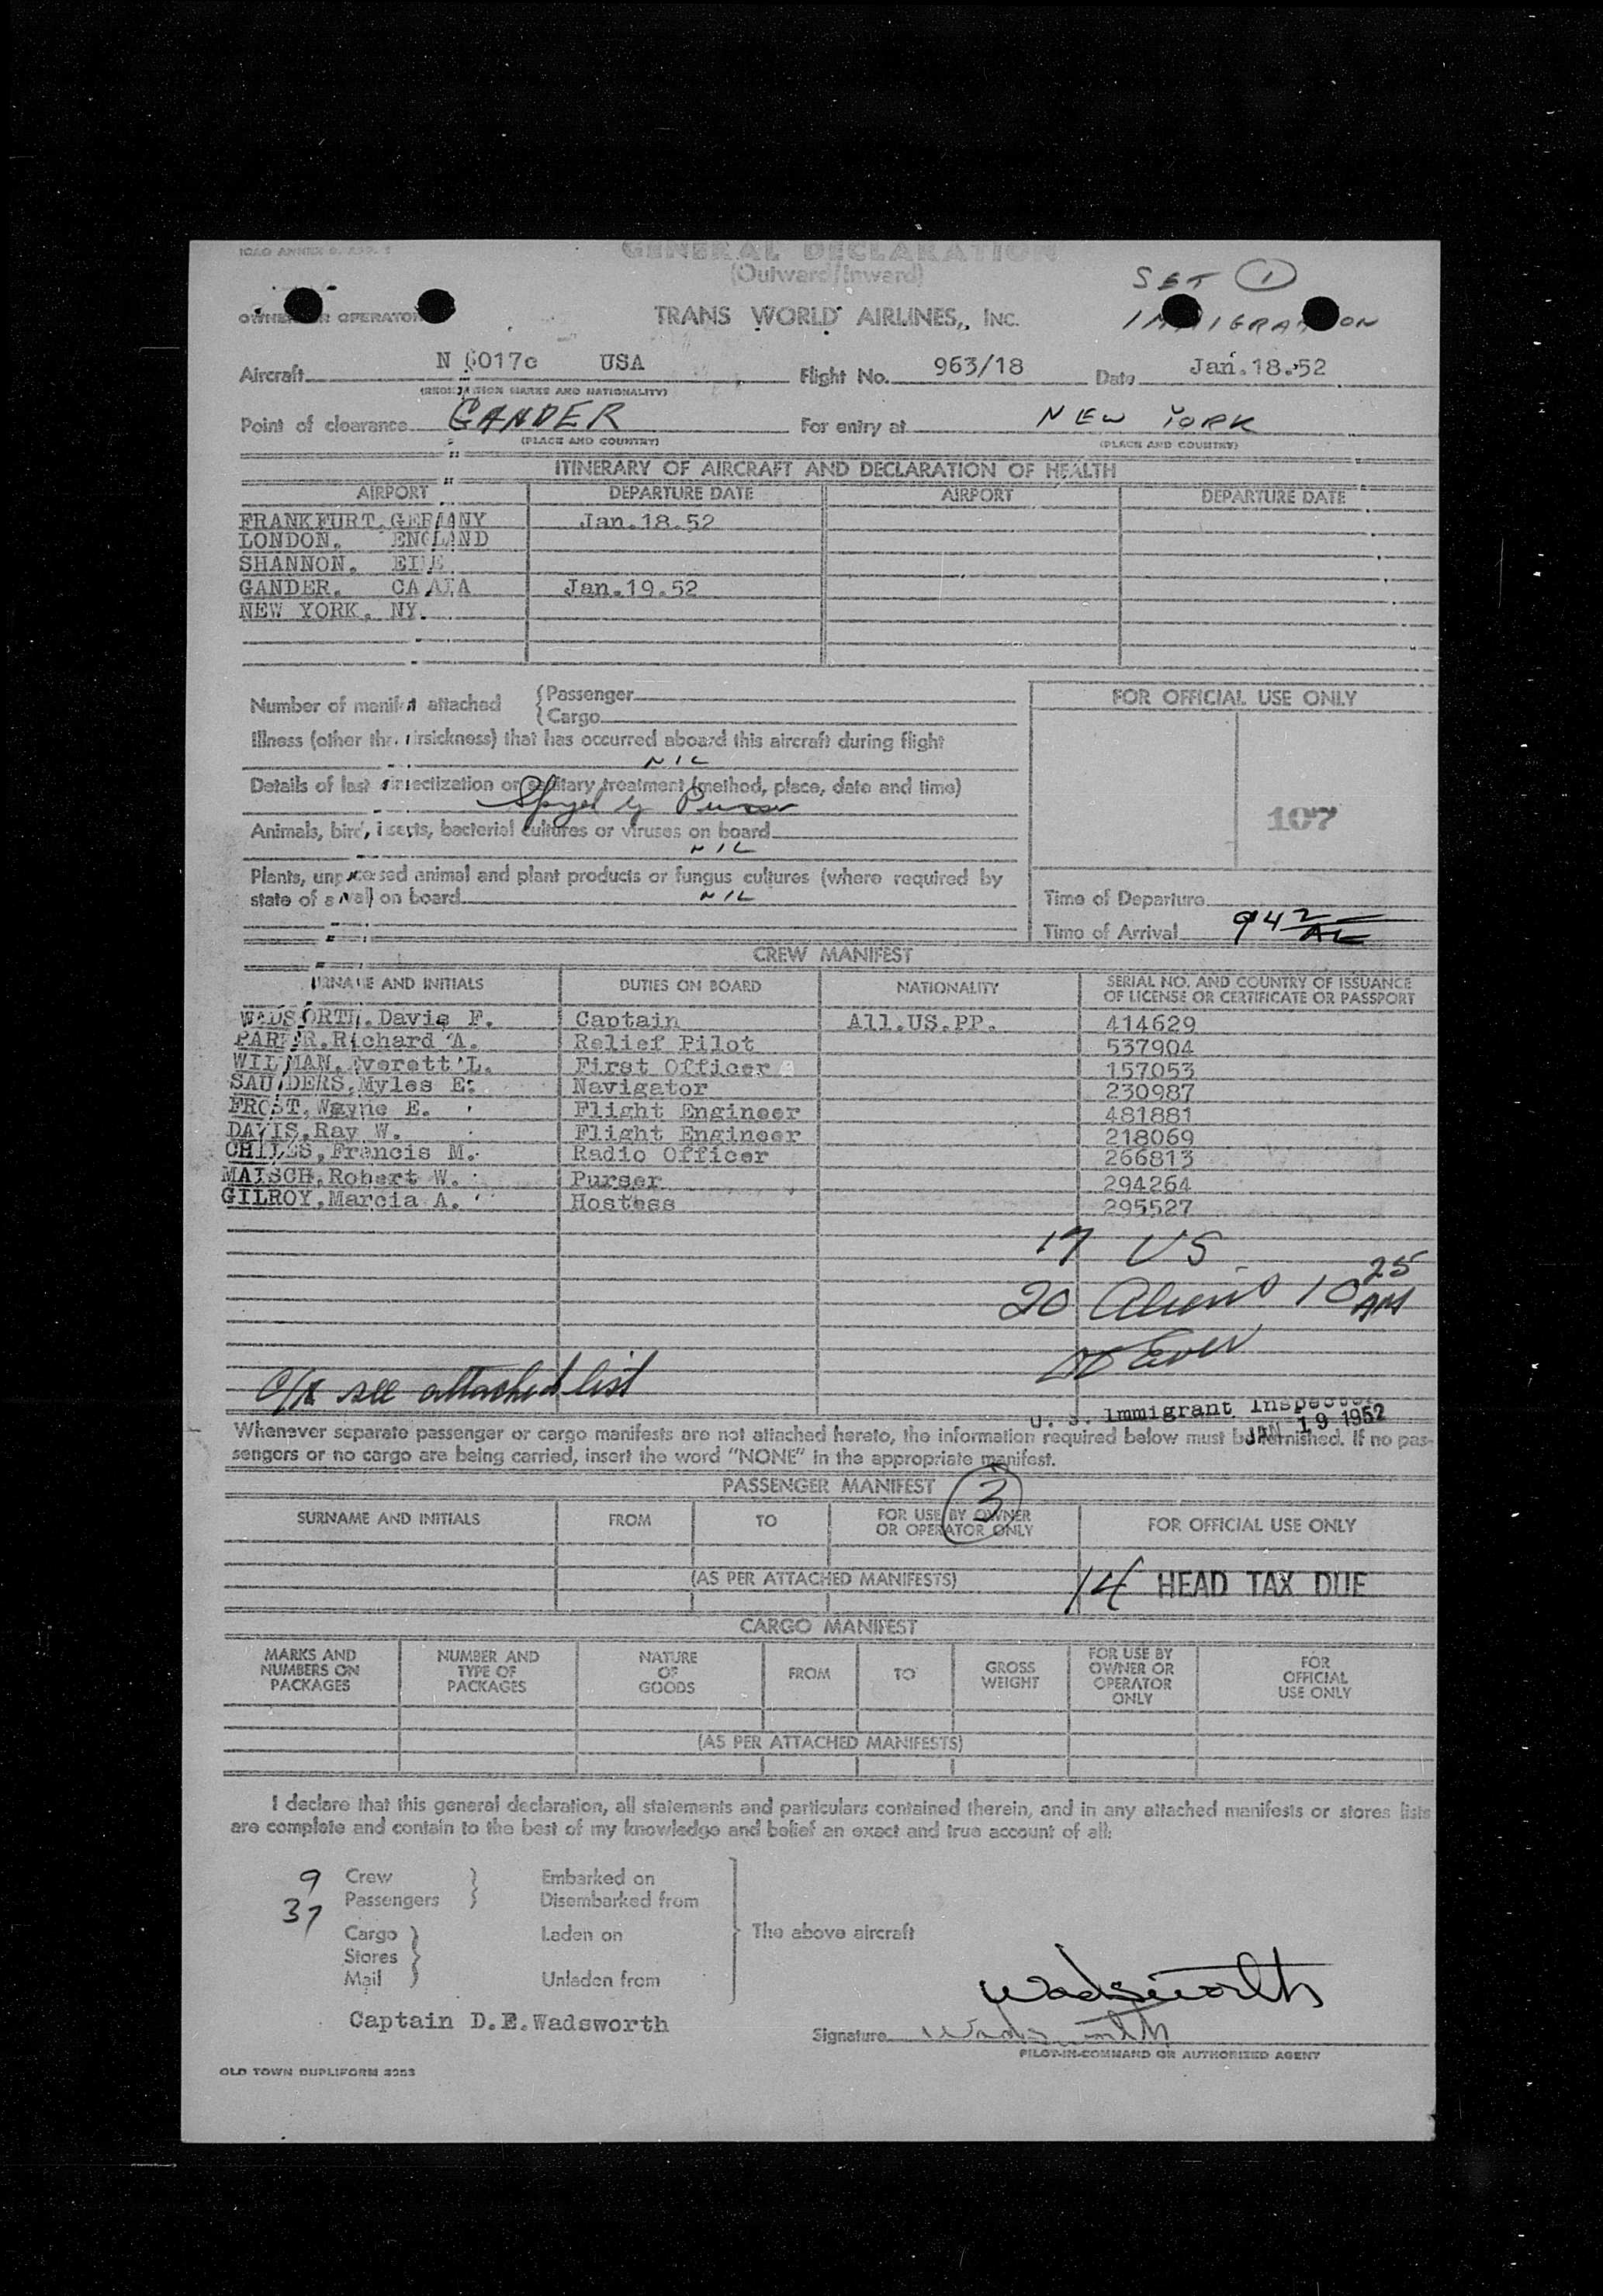 ICAO ANNEX 9. APP. 1
GENERAL DECLARATION
(Outward/Inward)
SET 1
OWNER OR OPERATOR
TRANS WORLD AIRLINES, INC.
IMMIGRATION
Aircraft N 6017c USA Flight No. 963/18 Date Jan.18.52
(REGISTRATION MARKS AND NATIONALITY)
Point of clearance GANDER For entry at NEW YORK
(PLACE AND COUNTRY) (PLACE AND COUNTRY)
ITINERARY OF AIRCRAFT AND DECLARATION OF HEALTH
AIRPORT DEPARTURE DATE AIRPORT DEPARTURE DATE
FRANKFURT.GERMANY Jan.18.52
LONDON. ENGLAND
SHANNON. EIRE
GANDER. CANADA Jan.19.52
NEW YORK. NY.
Number of manifest attached {Passenger
{Cargo
FOR OFFICIAL USE ONLY
Illness (other than airsickness) that has occurred aboard this aircraft during flight
NIL
Details of last disinsectization or sanitary treatment (method, place, date and time)
Sprayed by Purser
107
Animals, birds, insects, bacterial cultures or viruses on board
NIL
Plants, unprocessed animal and plant products or fungus cultures (where required by
state of arrival) on board NIL
Time of Departure
Time of Arrival 942
CREW MANIFEST
SURNAME AND INITIALS DUTIES ON BOARD NATIONALITY SERIAL NO. AND COUNTRY OF ISSUANCE
OF LICENSE OR CERTIFICATE OR PASSPORT
WADSWORTH.Davis F. Captain All.US.PP. 414629
PARKER.Richard A. Relief Pilot 537904
WILLMAN.Everett L. First Officer 157053
SAUNDERS.Myles E. Navigator 230987
FROST.Wayne E. Flight Engineer 481881
DAVIS.Ray W. Flight Engineer 218069
CHILES,Francis M. Radio Officer 266813
MAISCH.Robert W. Purser 294264
GILROY.Marcia A. Hostess 295527
17 US
20 Aliens 10 25 AM
see attached list
U. S. Immigrant Inspector
JAN 19 1952
Whenever separate passenger or cargo manifests are not attached hereto, the information required below must be furnished. If no pas-
sengers or no cargo are being carried, insert the word "NONE" in the appropriate manifest.
PASSENGER MANIFEST
3
SURNAME AND INITIALS FROM TO FOR USE BY OWNER
OR OPERATOR ONLY FOR OFFICIAL USE ONLY
(AS PER ATTACHED MANIFESTS) 14 HEAD TAX DUE
CARGO MANIFEST
MARKS AND
NUMBERS ON
PACKAGES
NUMBER AND
TYPE OF
PACKAGES
NATURE
OF
GOODS
FROM
TO
GROSS
WEIGHT
FOR USE BY
OWNER OR
OPERATOR
ONLY
FOR
OFFICIAL
USE ONLY
(AS PER ATTACHED MANIFESTS)
I declare that this general declaration, all statements and particulars contained therein, and in any attached manifests or stores lists
are complete and contain to the best of my knowledge and belief an exact and true account of all:
9 Crew } Embarked on
37 Passengers } Disembarked from
Cargo } Laden on The above aircraft
Stores }
Mail } Unladen from
Wadsworth
Captain D.E.Wadsworth
Signature Wadsworth
PILOT-IN-COMMAND OR AUTHORIZED AGENT
OLD TOWN DUPLIFORM 3253